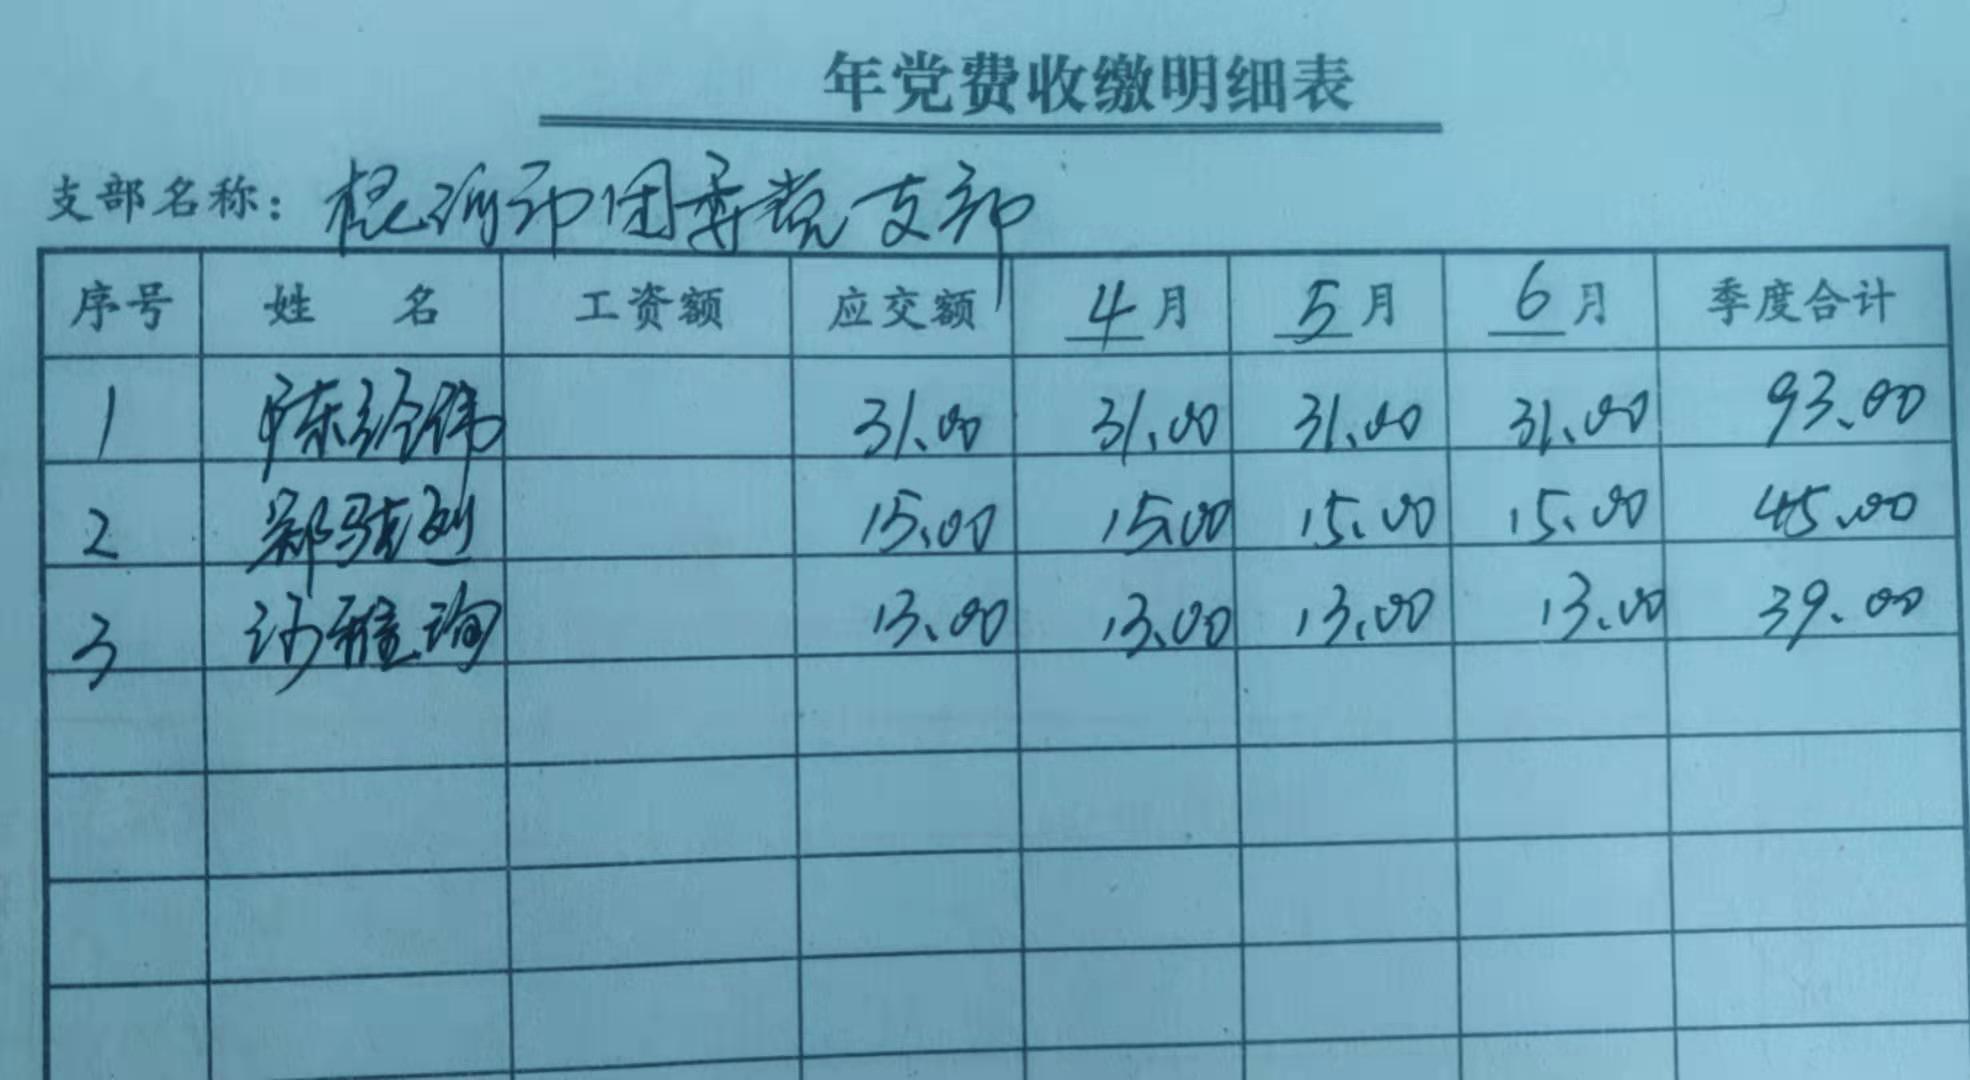 年党费收缴明细表
支部名称: 团委党支部
序号 姓 名 工资额 应交额 4月 5月 6月 季度合计
1 陈 伟 31.00 31.00 31.00 31.00 93.00
2 郑 15.00 15.00 15.00 15.00 45.00
3 许雅询 13.00 13.00 13.00 13.00 39.00